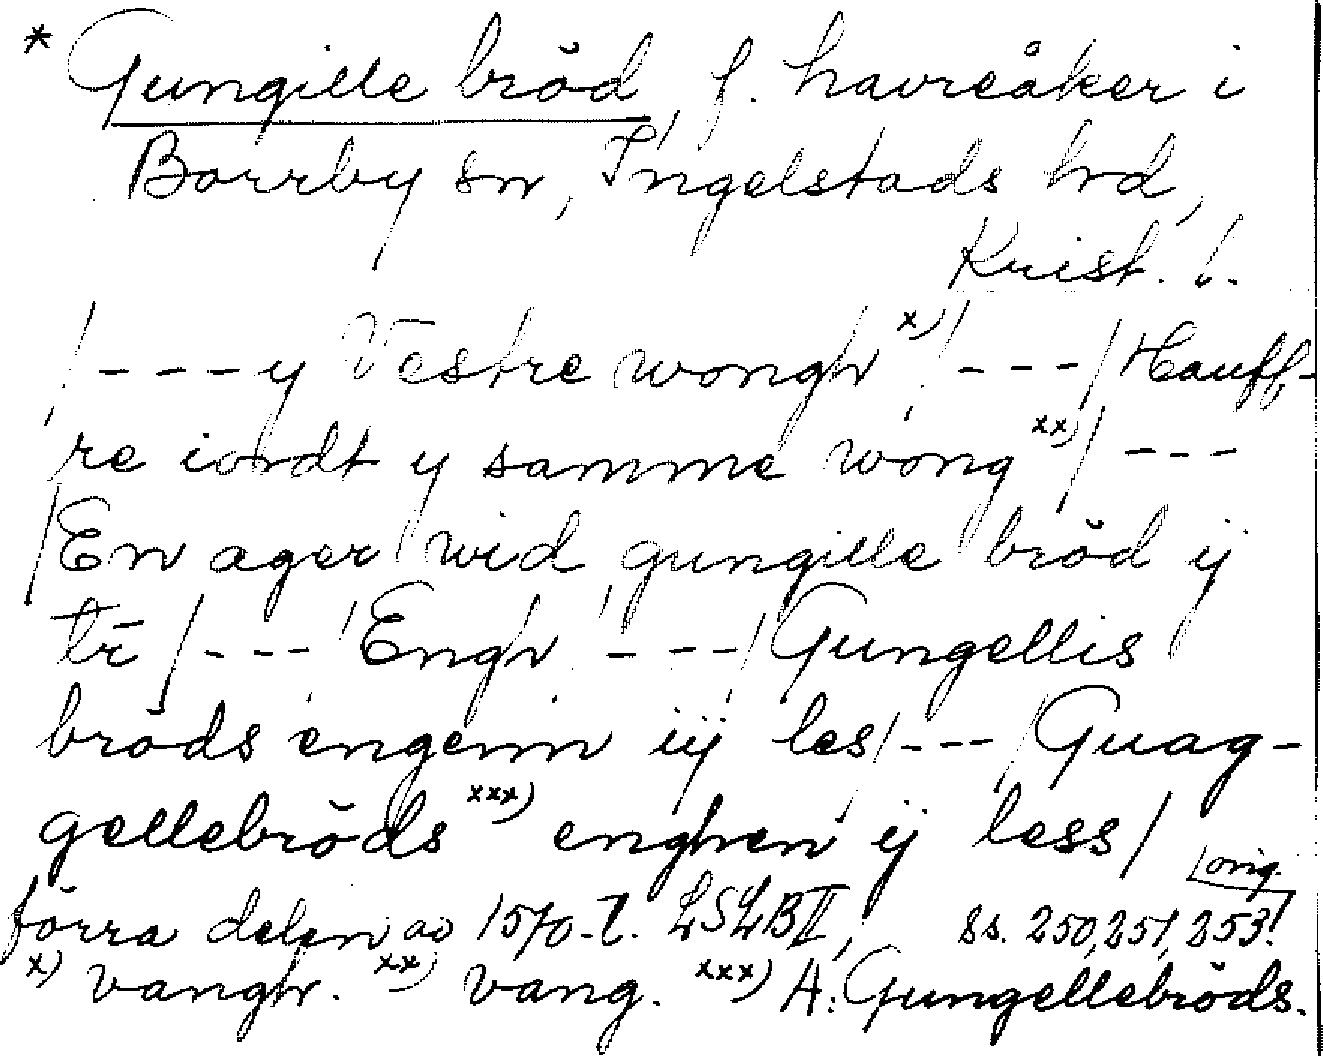 * Gungille brŏd, f. havreåker i
Borrby sn, Ingelstads hd,
Krist. l.
/---y Vestre wongh x) /---/ Hauff-
re iordt y samme wong xx) / ---
/ En ager wid gungille brŏd ij
tr̄ /--- / Engh / ---/ Gungellis
brŏds engenn iij les /--- / Guag-
gellebrŏds xxx) enghen ij less /
förra delen av 1570-t. LSLB II, ss. 250, 251, 253! orig.
x) vangh. xx) vang. xxx) A: Gungellebrŏds.